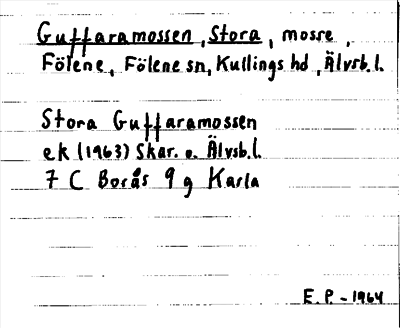 Guffaramossen, Stora, mosse,
Fölene, Fölene sn, Kullings hd, Älvsb.l.
Stora Guffaramossen
ek (1963) Skar. o. Älvsb.l.
7 C Borås 9 g Karla
E. P - 1964